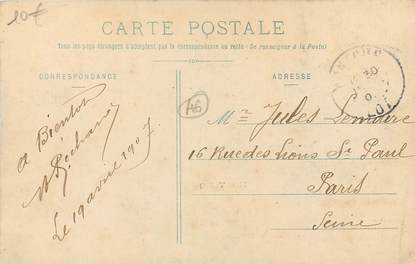 10€
CARTE POSTALE
Tous les pays étrangers n'acceptent pas la correspondance au recto (Se renseigner à la Poste)
CORRESPONDANCE
ADRESSE
A6
A Bientot
Le 19 avril 1907
Mme Jules Lemaire
16 Rue des Lions St Paul
Paris
Seine